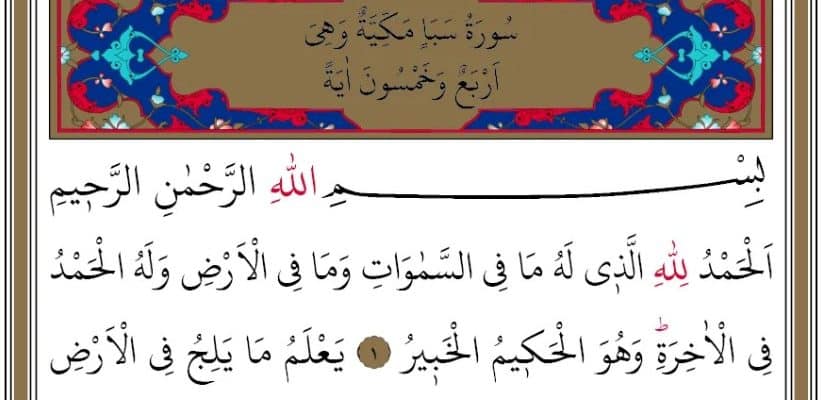 سُورَةُ سَبَاٍ مَكِّيَّةٌ وَهِيَ
اَرْبَعٌ وَخَمْسُونَ اٰيَةً
بِسْمِ اللّٰهِ الرَّحْمٰنِ الرَّحٖيمِ
اَلْحَمْدُ لِلّٰهِ الَّذٖى لَهُ مَا فِى السَّمٰوَاتِ وَمَا فِى الْاَرْضِ وَلَهُ الْحَمْدُ
فِى الْاٰخِرَةِؕ وَهُوَ الْحَكٖيمُ الْخَبٖيرُ ١ يَعْلَمُ مَا يَلِجُ فِى الْاَرْضِ